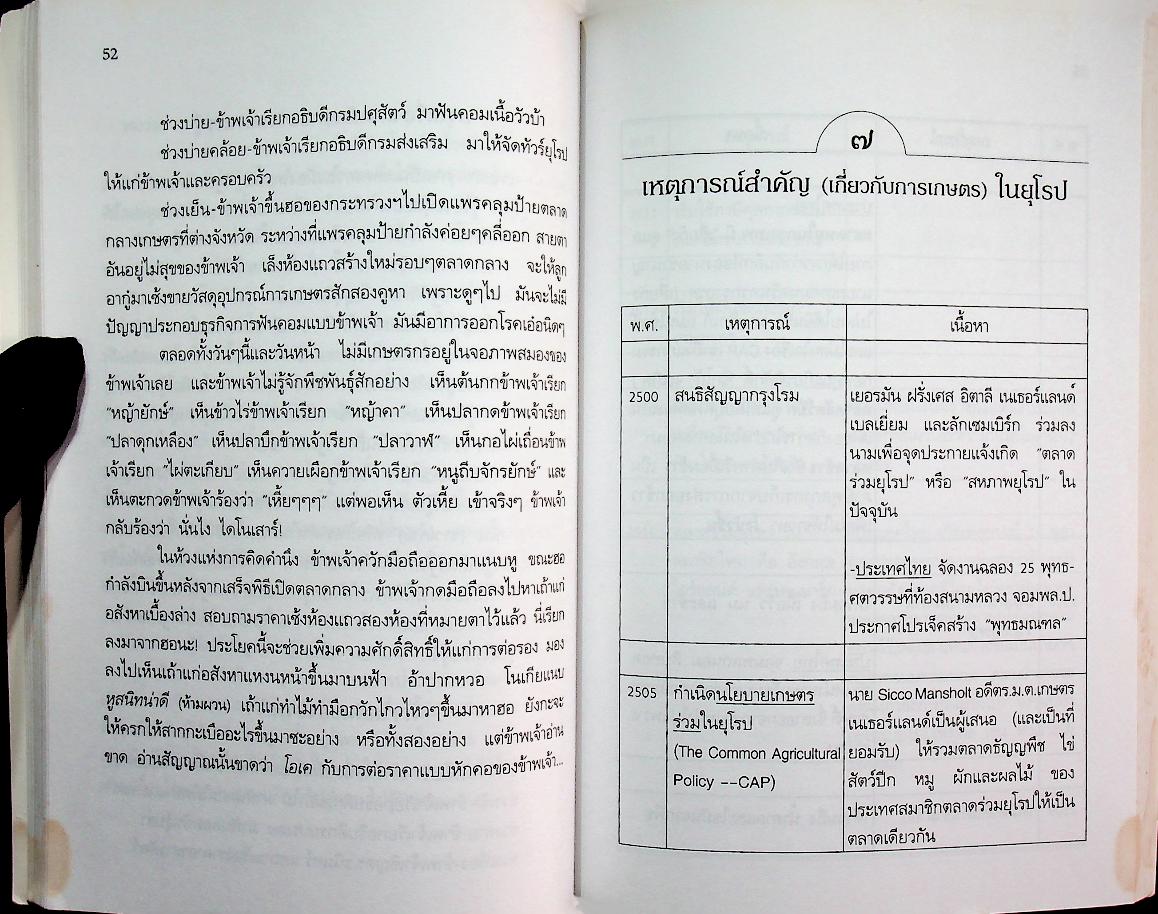 52
ช่วงบ่าย-ข้าพเจ้าเรียกอธิบดีกรมปศุสัตว์ มาฟันคอมเนื้อวัวบ้า
ช่วงบ่ายคล้อย-ข้าพเจ้าเรียกอธิบดีกรมส่งเสริม มาให้จัดทัวร์ยุโรป
ให้แก่ข้าพเจ้าและครอบครัว
ช่วงเย็น-ข้าพเจ้าขึ้นฮอของกระทรวงฯไปเปิดแพรคลุมป้ายตลาด
กลางเกษตรที่ต่างจังหวัด ระหว่างที่แพรคลุมป้ายกำลังค่อยๆคลี่ออก สายตา
อันอยู่ไม่สุขของข้าพเจ้า เล็งห้องแถวสร้างใหม่รอบๆตลาดกลาง จะให้ลูก
อากู๋มาเซ้งขายวัสดุอุปกรณ์การเกษตรสักสองคูหา เพราะดูๆไป มันจะไม่มี
ปัญญาประกอบธุรกิจการฟันคอมแบบข้าพเจ้า มันมีอาการออกโรคเอ๋อนิดๆ
ตลอดทั้งวันๆนี้และวันหน้า ไม่มีเกษตรกรอยู่ในจอภาพสมองของ
ข้าพเจ้าเลย และข้าพเจ้าไม่รู้จักพืชพันธุ์สักอย่าง เห็นต้นกกข้าพเจ้าเรียก
"หญ้ายักษ์" เห็นข้าวไร่ข้าพเจ้าเรียก "หญ้าคา" เห็นปลากดข้าพเจ้าเรียก
"ปลาดุกเหลือง" เห็นปลาบึกข้าพเจ้าเรียก "ปลาวาฬ" เห็นกอไผ่เถื่อนข้าพ
เจ้าเรียก "ไผ่ตะเกียบ" เห็นควายเผือกข้าพเจ้าเรียก "หนูถีบจักรยักษ์" และ
เห็นตะกวดข้าพเจ้าร้องว่า "เหี้ยๆๆๆ" แต่พอเห็น ตัวเหี้ย เข้าจริงๆ ข้าพเจ้า
กลับร้องว่า นั่นไง ไดโนเสาร์!
ในห้วงแห่งการคิดคำนึง ข้าพเจ้าควักมือถือออกมาแนบหู ขณะฮอ
กำลังบินขึ้นหลังจากเสร็จพิธีเปิดตลาดกลาง ข้าพเจ้ากดมือถือลงไปหาเถ้าแก่
อสังหาเบื้องล่าง สอบถามราคาเซ้งห้องแถวสองห้องที่หมายตาไว้แล้ว นี่เรียก
ลงมาจากฮอนะ! ประโยคนี้จะช่วยเพิ่มความศักดิ์สิทธิ์ให้แก่การต่อรอง มอง
ลงไปเห็นเถ้าแก่อสังหาแหงนหน้าขึ้นมาบนฟ้า อ้าปากหวอ โนเกียแนบ
หูสนิทน่าดี (ห้ามผวน) เถ้าแก่ทำไม้ทำมือกวักไกวไหวๆขึ้นมาหาฮอ ยังกะจะ
ให้ครกให้สากกะเบืออะไรขึ้นมาซะอย่าง หรือทั้งสองอย่าง แต่ข้าพเจ้าอ่าน
ขาด อ่านสัญญาณนั้นขาดว่า โอเค กับการต่อราคาแบบหักคอของข้าพเจ้า...
๗
เหตุการณ์สำคัญ (เกี่ยวกับการเกษตร) ในยุโรป
พ.ศ. เหตุการณ์ เนื้อหา
2500 สนธิสัญญากรุงโรม เยอรมัน ฝรั่งเศส อิตาลี เนเธอร์แลนด์
เบลเยี่ยม และลักเซมเบิร์ก ร่วมลง
นามเพื่อจุดประกายแจ้งเกิด "ตลาด
ร่วมยุโรป" หรือ "สหภาพยุโรป" ใน
ปัจจุบัน
-ประเทศไทย จัดงานฉลอง 25 พุทธ-
ศตวรรษที่ท้องสนามหลวง จอมพล.ป.
ประกาศโปรเจ็คสร้าง "พุทธมณฑล"
2505 กำเนิดนโยบายเกษตร นาย Sicco Mansholt อดีตร.ม.ต.เกษตร
ร่วมในยุโรป เนเธอร์แลนด์เป็นผู้เสนอ (และเป็นที่
(The Common Agricultural ยอมรับ) ให้รวมตลาดธัญญพืช ไข่
Policy --CAP) สัตว์ปีก หมู ผักและผลไม้ ของ
ประเทศสมาชิกตลาดร่วมยุโรปให้เป็น
ตลาดเดียวกัน